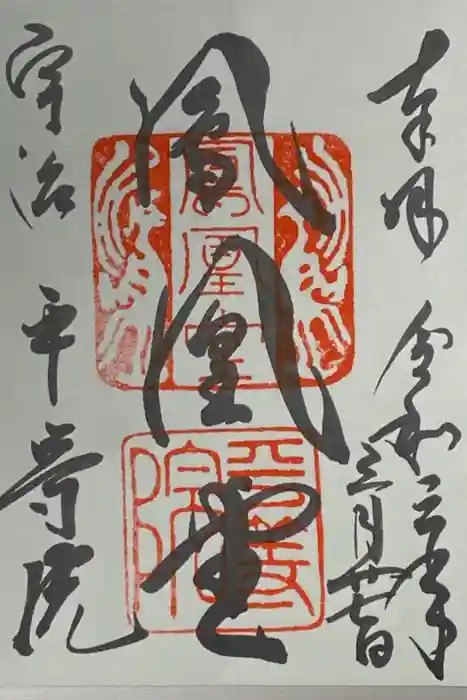 奉拝 令和三年
三月廿七日
鳳凰堂
宇治 平等院
鳳凰堂
平等院